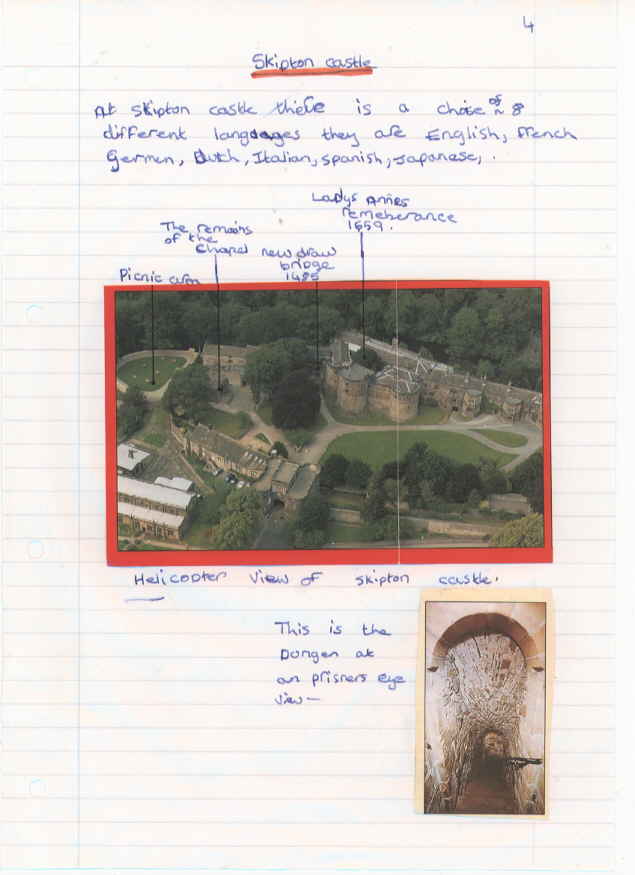 4
Skipton castle
At Skipton castle there is a choise of 8
different languages they are English, French
Germen, Dutch, Italian, spanish, Japanese, .
Ladys Annes
remeberance
1659.
The remains
of the
chapel
new draw
bridge
1485
Picnic area
Helicopter view of skipton castle.
This is the
Dungen at
an prisners eye
view-